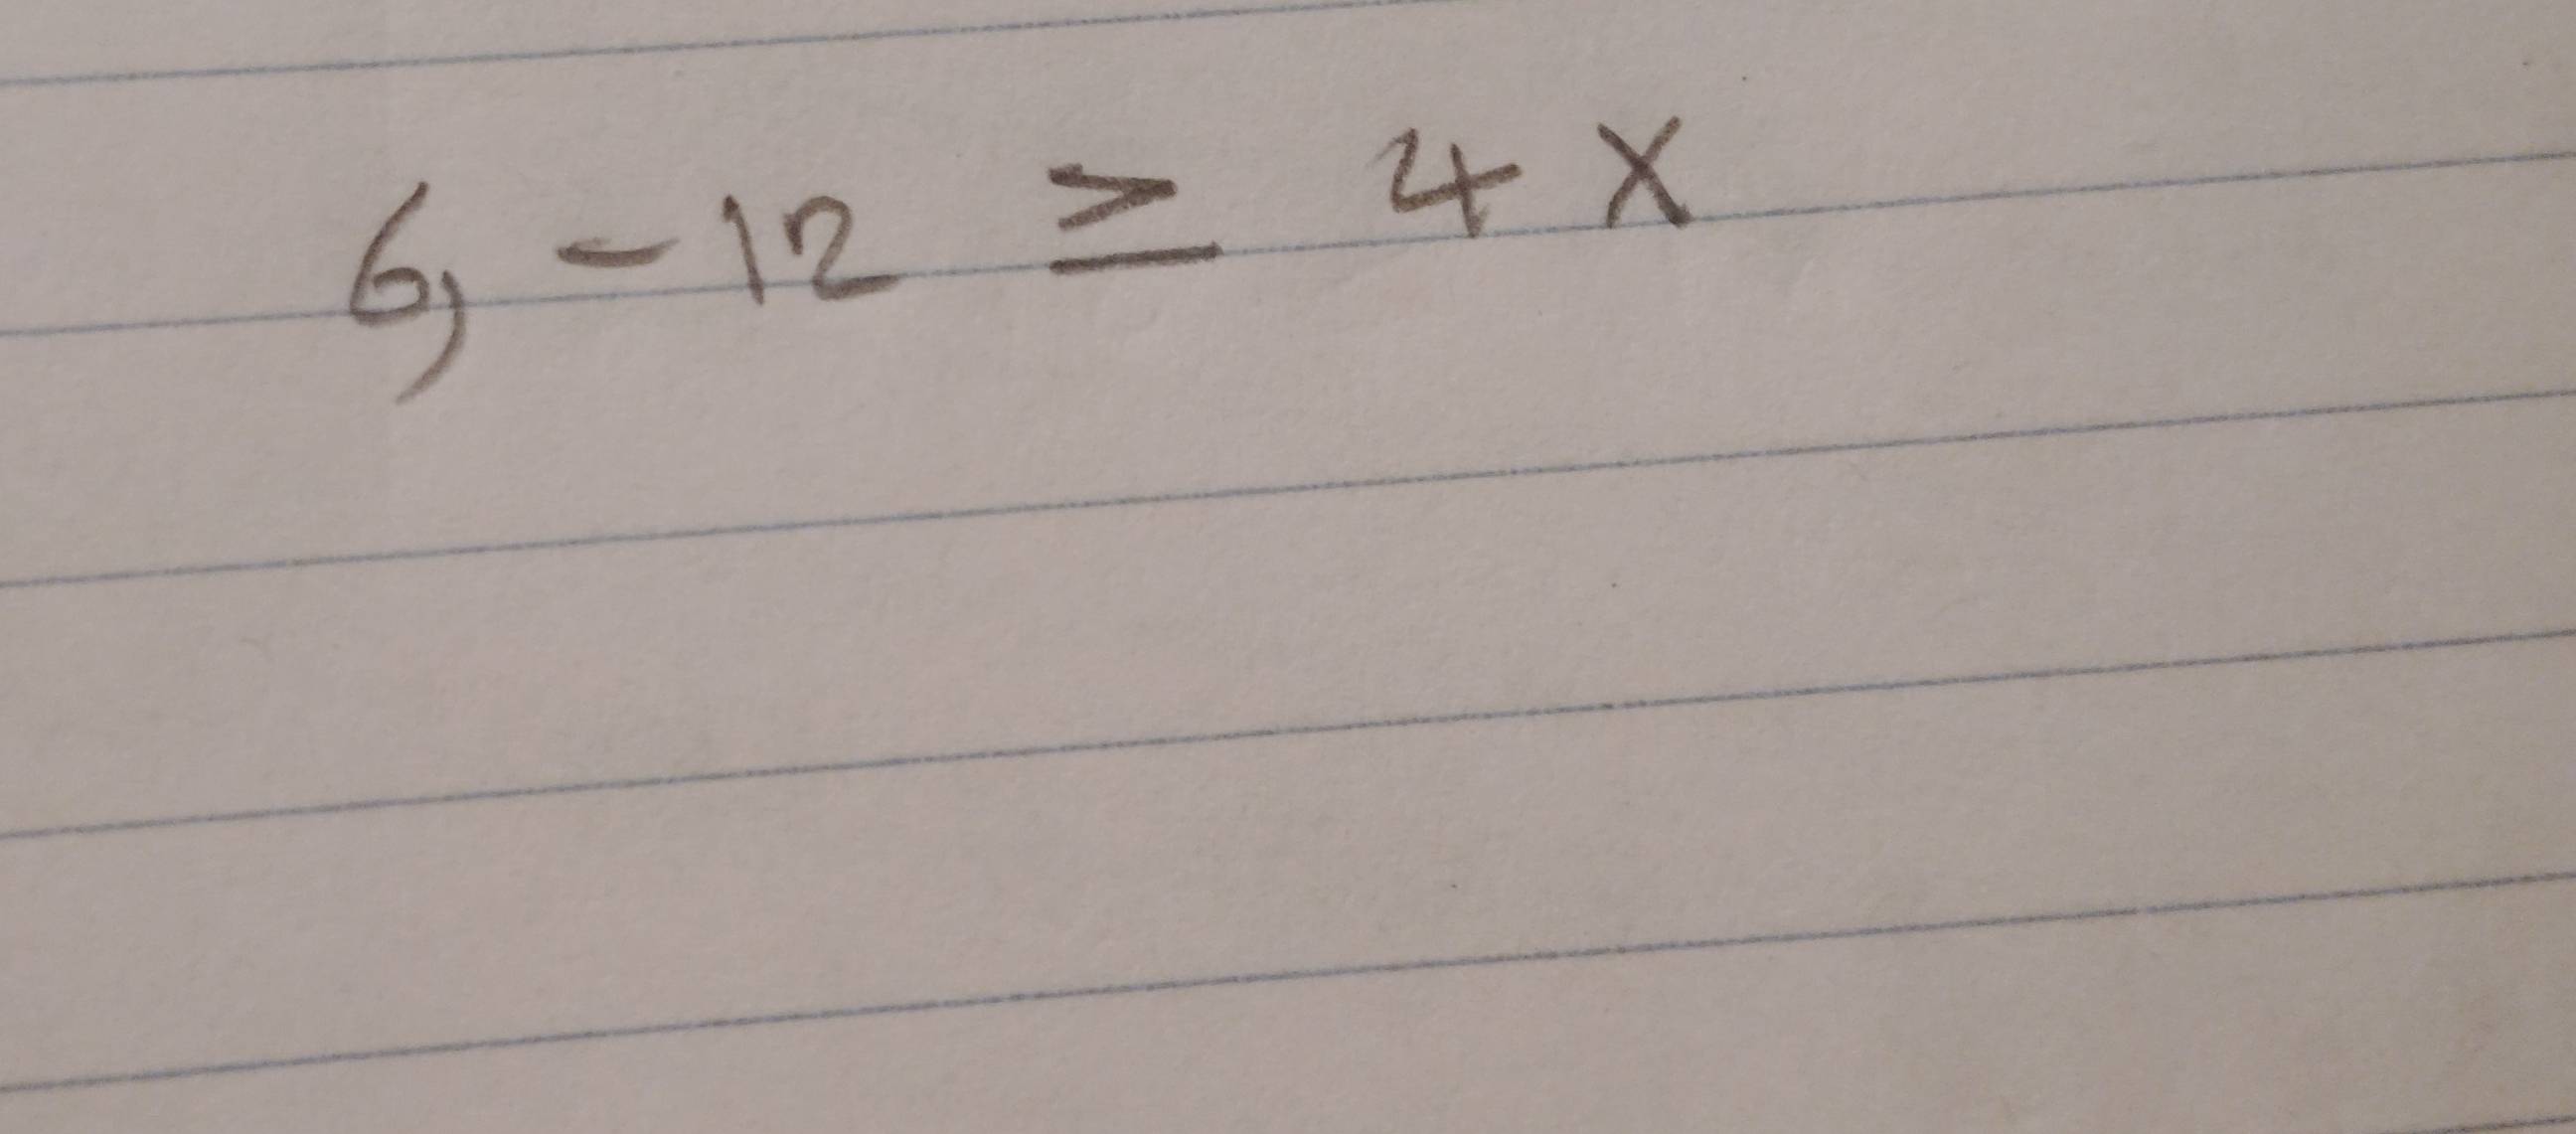 6, -12 ≥ 4x